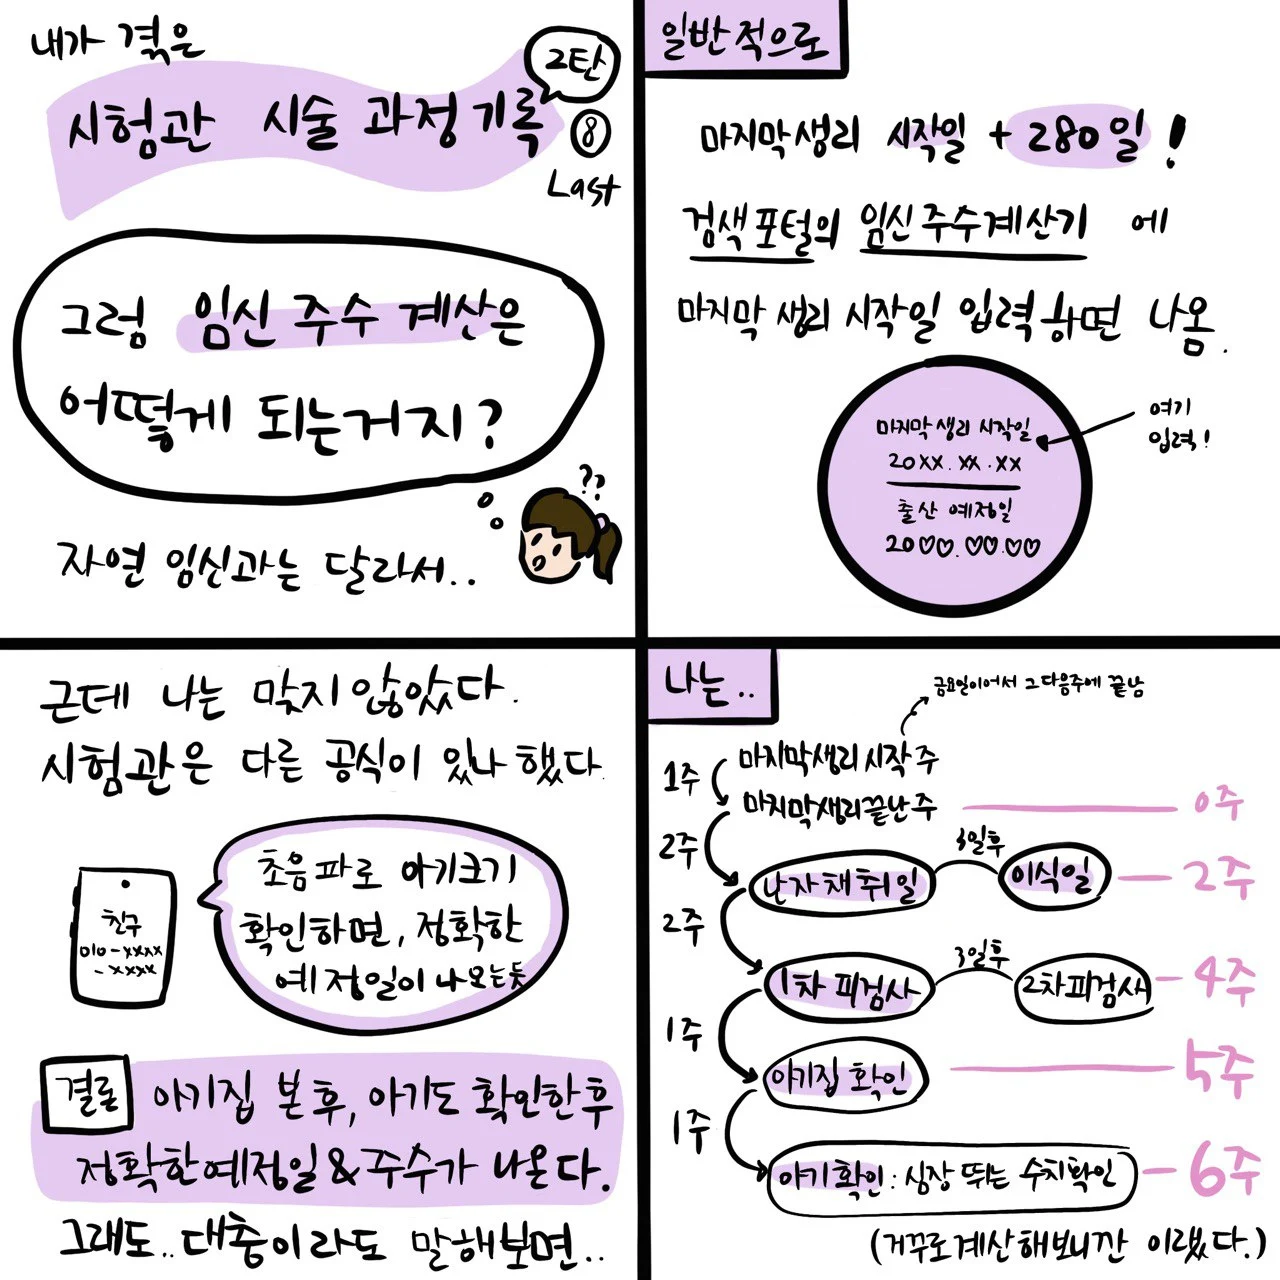 내가 겪은
시험관 시술 과정 기록
2탄
8
Last
그럼 임신 주수 계산은
어떻게 되는거지?
??
자연 임신과는 달라서..
일반적으로
마지막생리 시작일 + 280일!
검색포털의 임신주수계산기 에
마지막 생리 시작일 입력하면 나옴.
마지막 생리 시작일
20XX.XX.XX
출산 예정일
20♡♡.♡♡.♡♡
여기
입력!
근데 나는 맞지 않았다.
시험관은 다른 공식이 있나 했다.
친구
010-XXXX
-XXXX
초음파로 아기크기
확인하면, 정확한
예정일이 나오는듯
결론
아기집 본 후, 아기도 확인한 후
정확한 예정일 & 주수가 나온다.
그래도.. 대충이라도 말해보면..
나는..
금요일이어서 그 다음주에 끝남
마지막생리 시작 주
1주
마지막생리 끝난 주
0주
2주
난자채취일
3일후
이식일
2주
2주
1차 피검사
3일후
2차피검사
4주
1주
아기집 확인
5주
1주
아기확인 : 심장 뛰는 수치확인
6주
(거꾸로계산해보니깐 이랬다.)